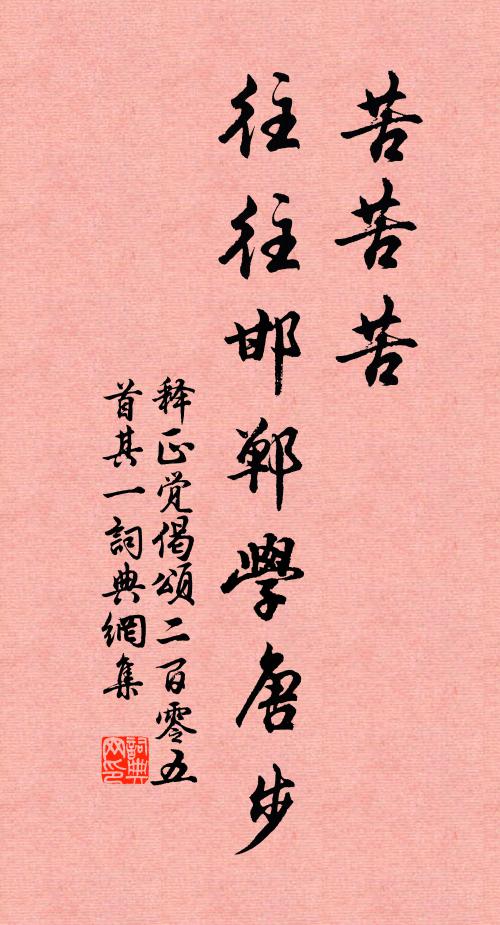 苦苦苦
往往邯鄲學唐步
释正觉偈頌二百零五
首其一詞典網集
詞典
网印